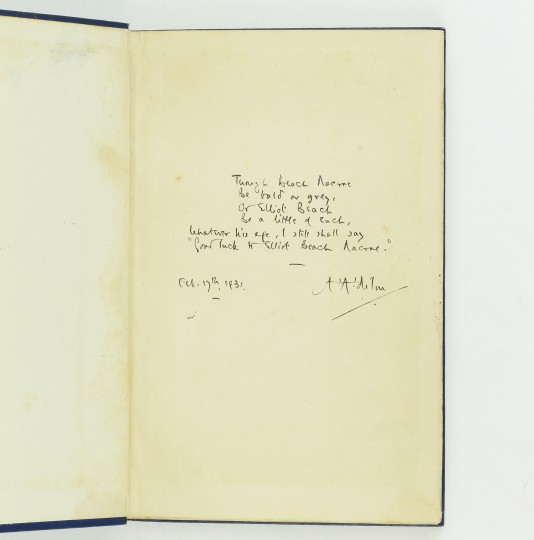 Though Beach Macrae
Be bald or grey,
Or Elliot Beach
Be a little of each,
Whatever his age, I still shall say
"Good luck to Elliot Beach Macrae."
Feb. 17th, 1931.
A.A. Milne